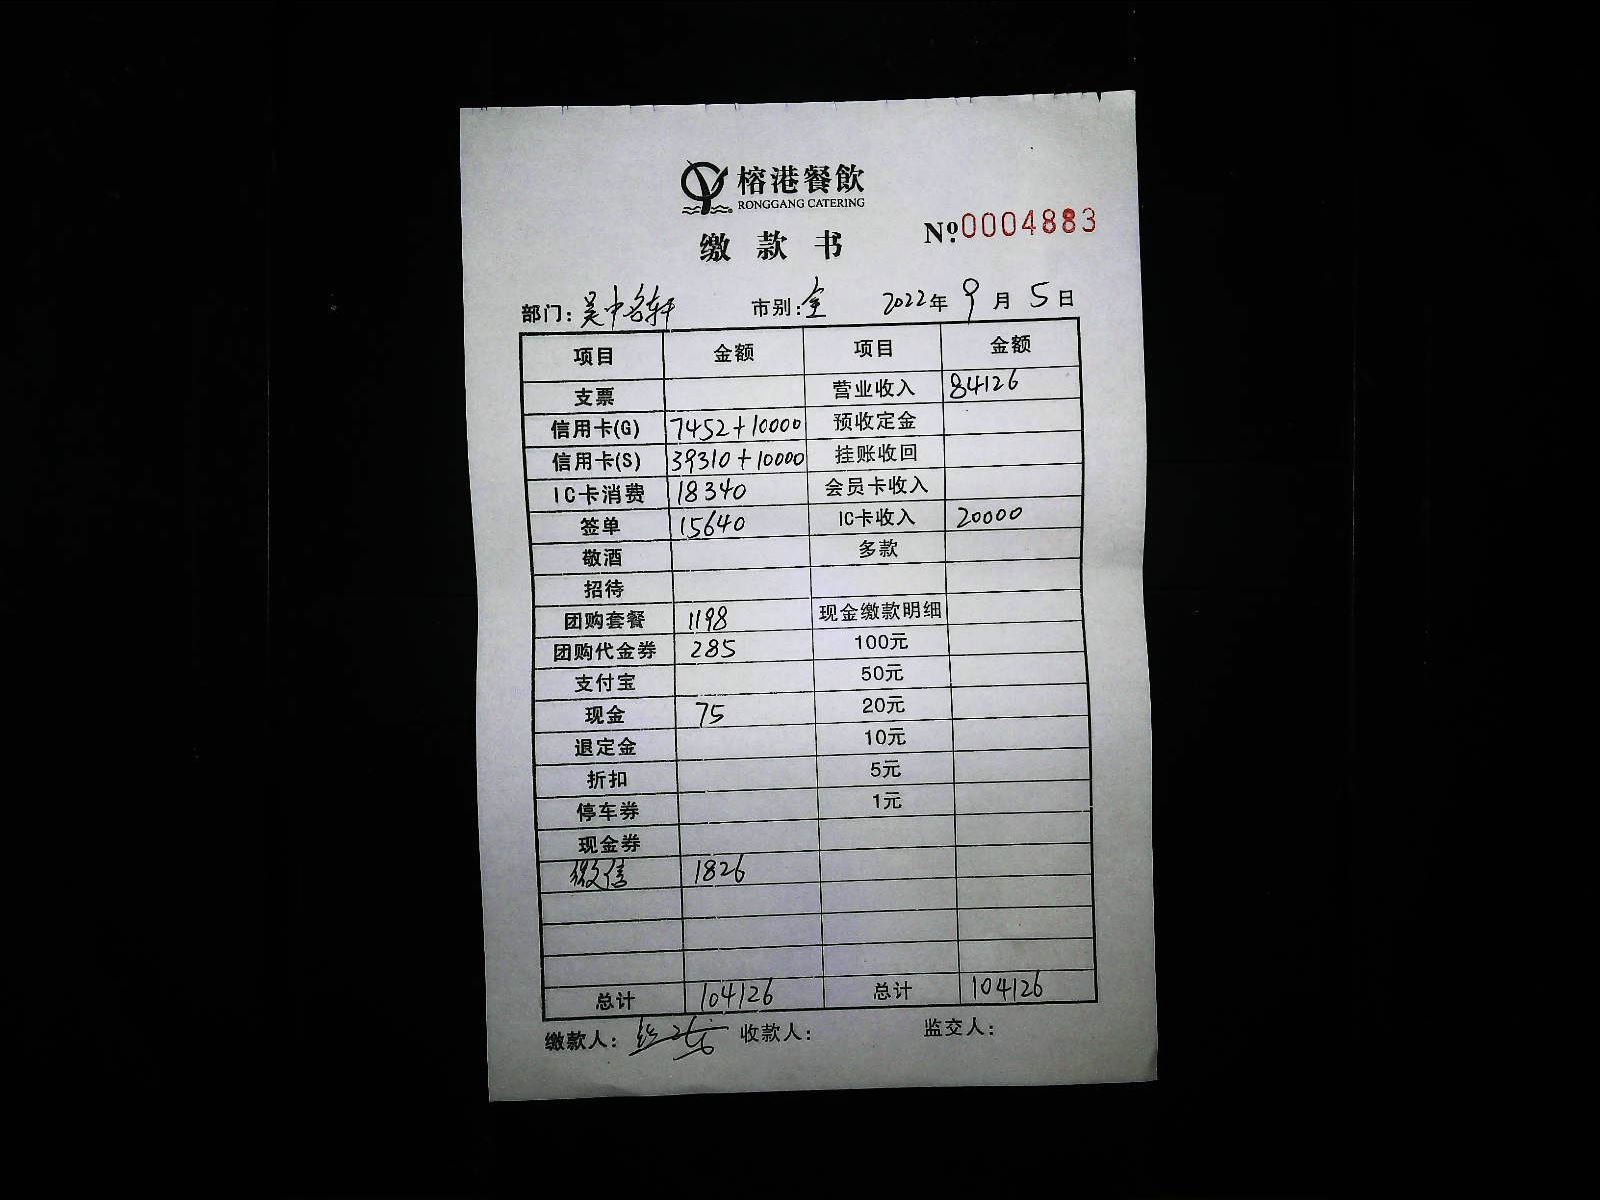 榕港餐飲
RONGGANG CATERING
缴款书
Nº.0004883
部门：吴中名轩 市别：全 2022年 9月 5日
项目 金额 项目 金额
支票 营业收入 84126
信用卡(G) 7452+10000 预收定金
信用卡(S) 39310+10000 挂账收回
IC卡消费 18340 会员卡收入
签单 15640 IC卡收入 20000
敬酒 多款
招待
团购套餐 1198 现金缴款明细
团购代金券 285 100元
支付宝 50元
现金 75 20元
退定金 10元
折扣 5元
停车券 1元
现金券
微信 1826
总计 104126 总计 104126
缴款人： 收款人： 监交人：